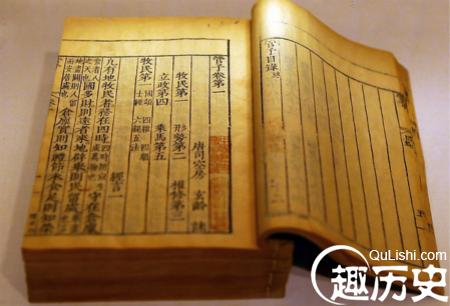 管子目錄終
管子卷第一
唐司空房玄齡註
牧民第一 形勢第二 權修第三
立政第四 乘馬第五
牧民第一 國頌 四維 四順 士經 六親五法
經言一
凡有地牧民者務在四時 守在倉廩
國多財則遠者來地辟舉則民留處
倉廩實則知禮節衣食足則知榮
QuLishi.com
趣历史